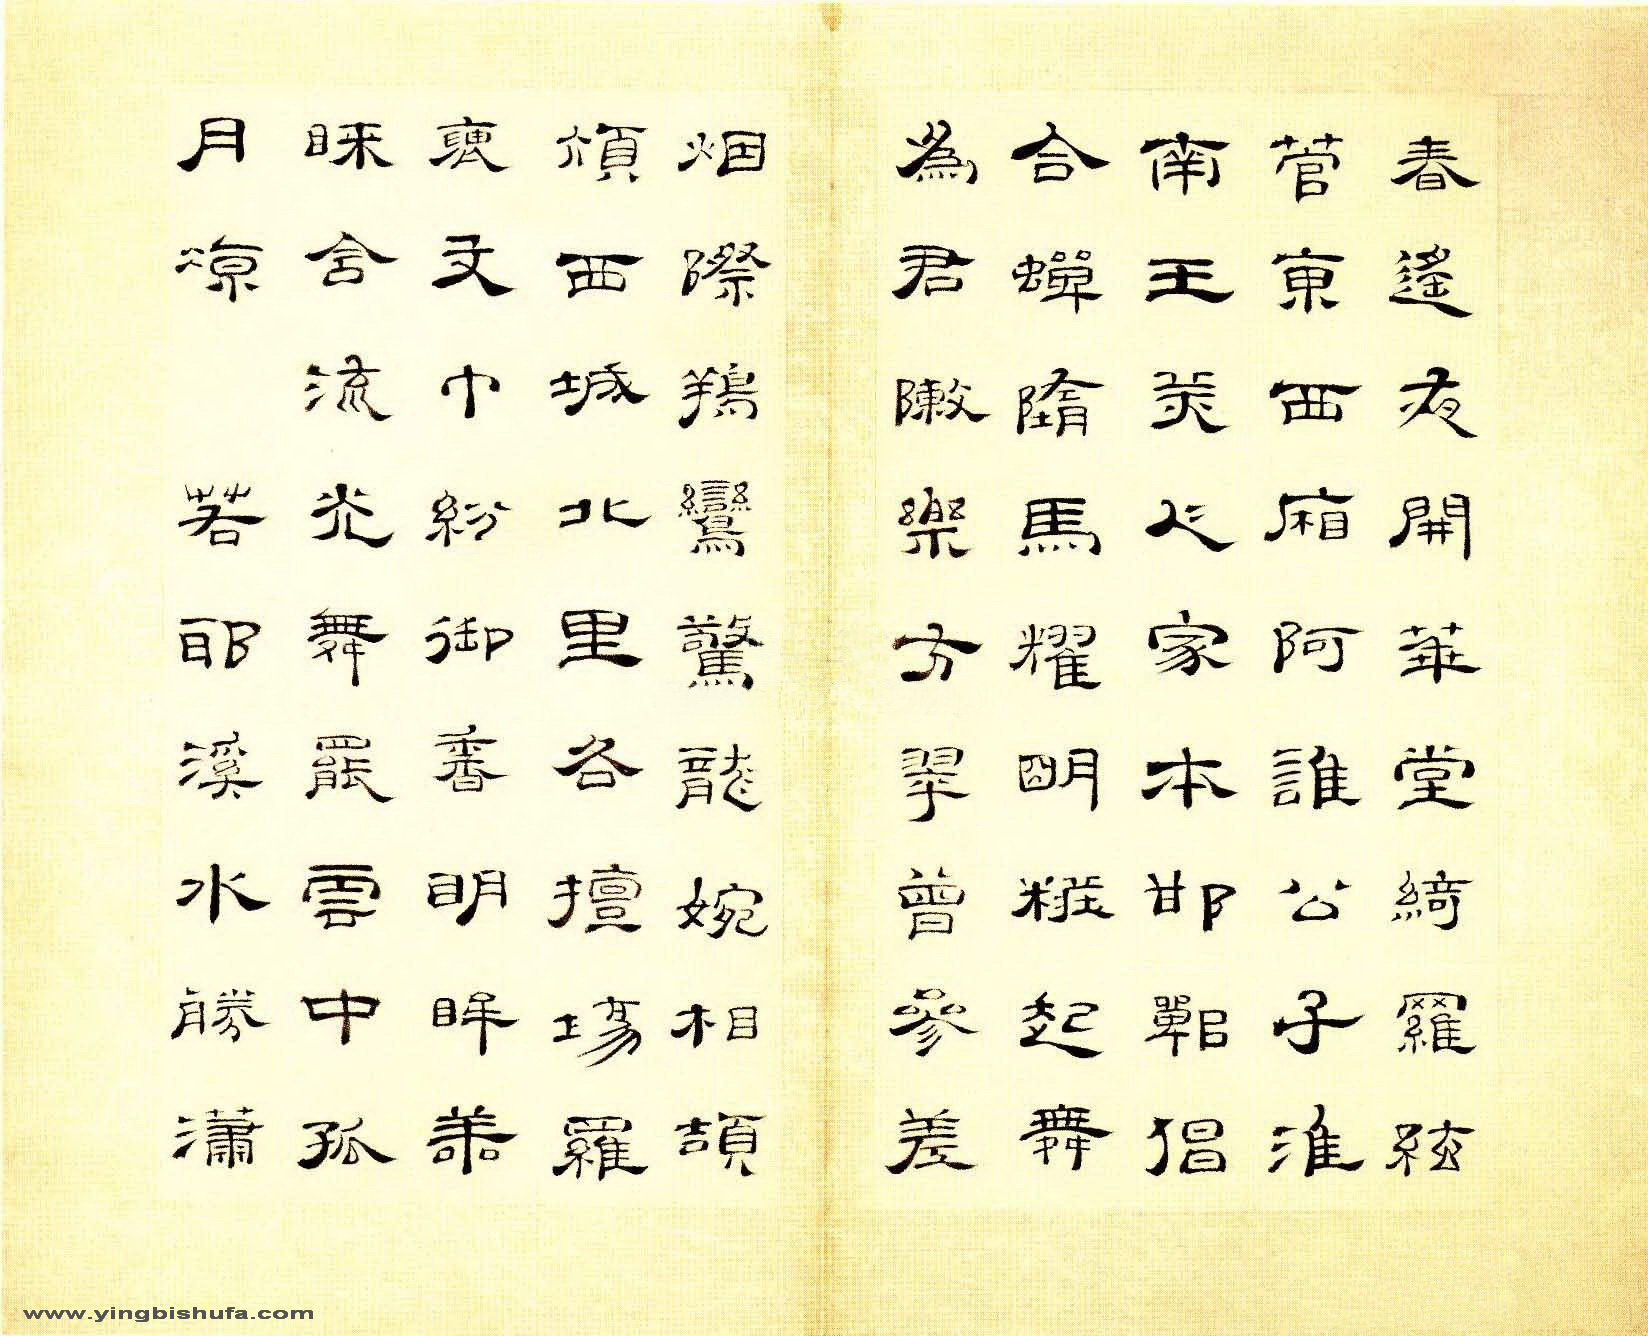 春遙夜開華堂綺羅絃
管東西廂阿誰公子淮
南王美人家本邯鄲倡
合蟬隋馬耀明糚起舞
為君敶樂方翠曾參差
烟際鴹鸞驚龍婉相頡
頏西城北里各擅場羅
褎文巾紛御香明眸善
睞含流光舞罷雲中孤
月涼 若耶溪水勝瀟
www.yingbishufa.com